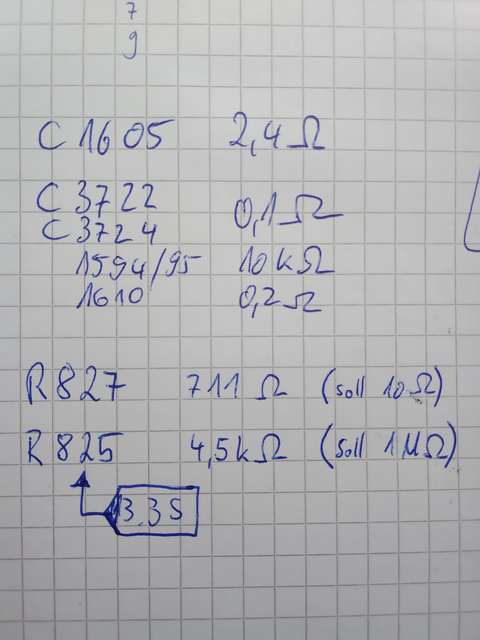 7
9
C 1605 2,4 Ω
C 3722 0,1 Ω
C 3724
1594/95 10 kΩ
1610 0,2 Ω
R 827 711 Ω (soll 10 Ω)
R 825 4,5 kΩ (soll 1 MΩ)
3.3S